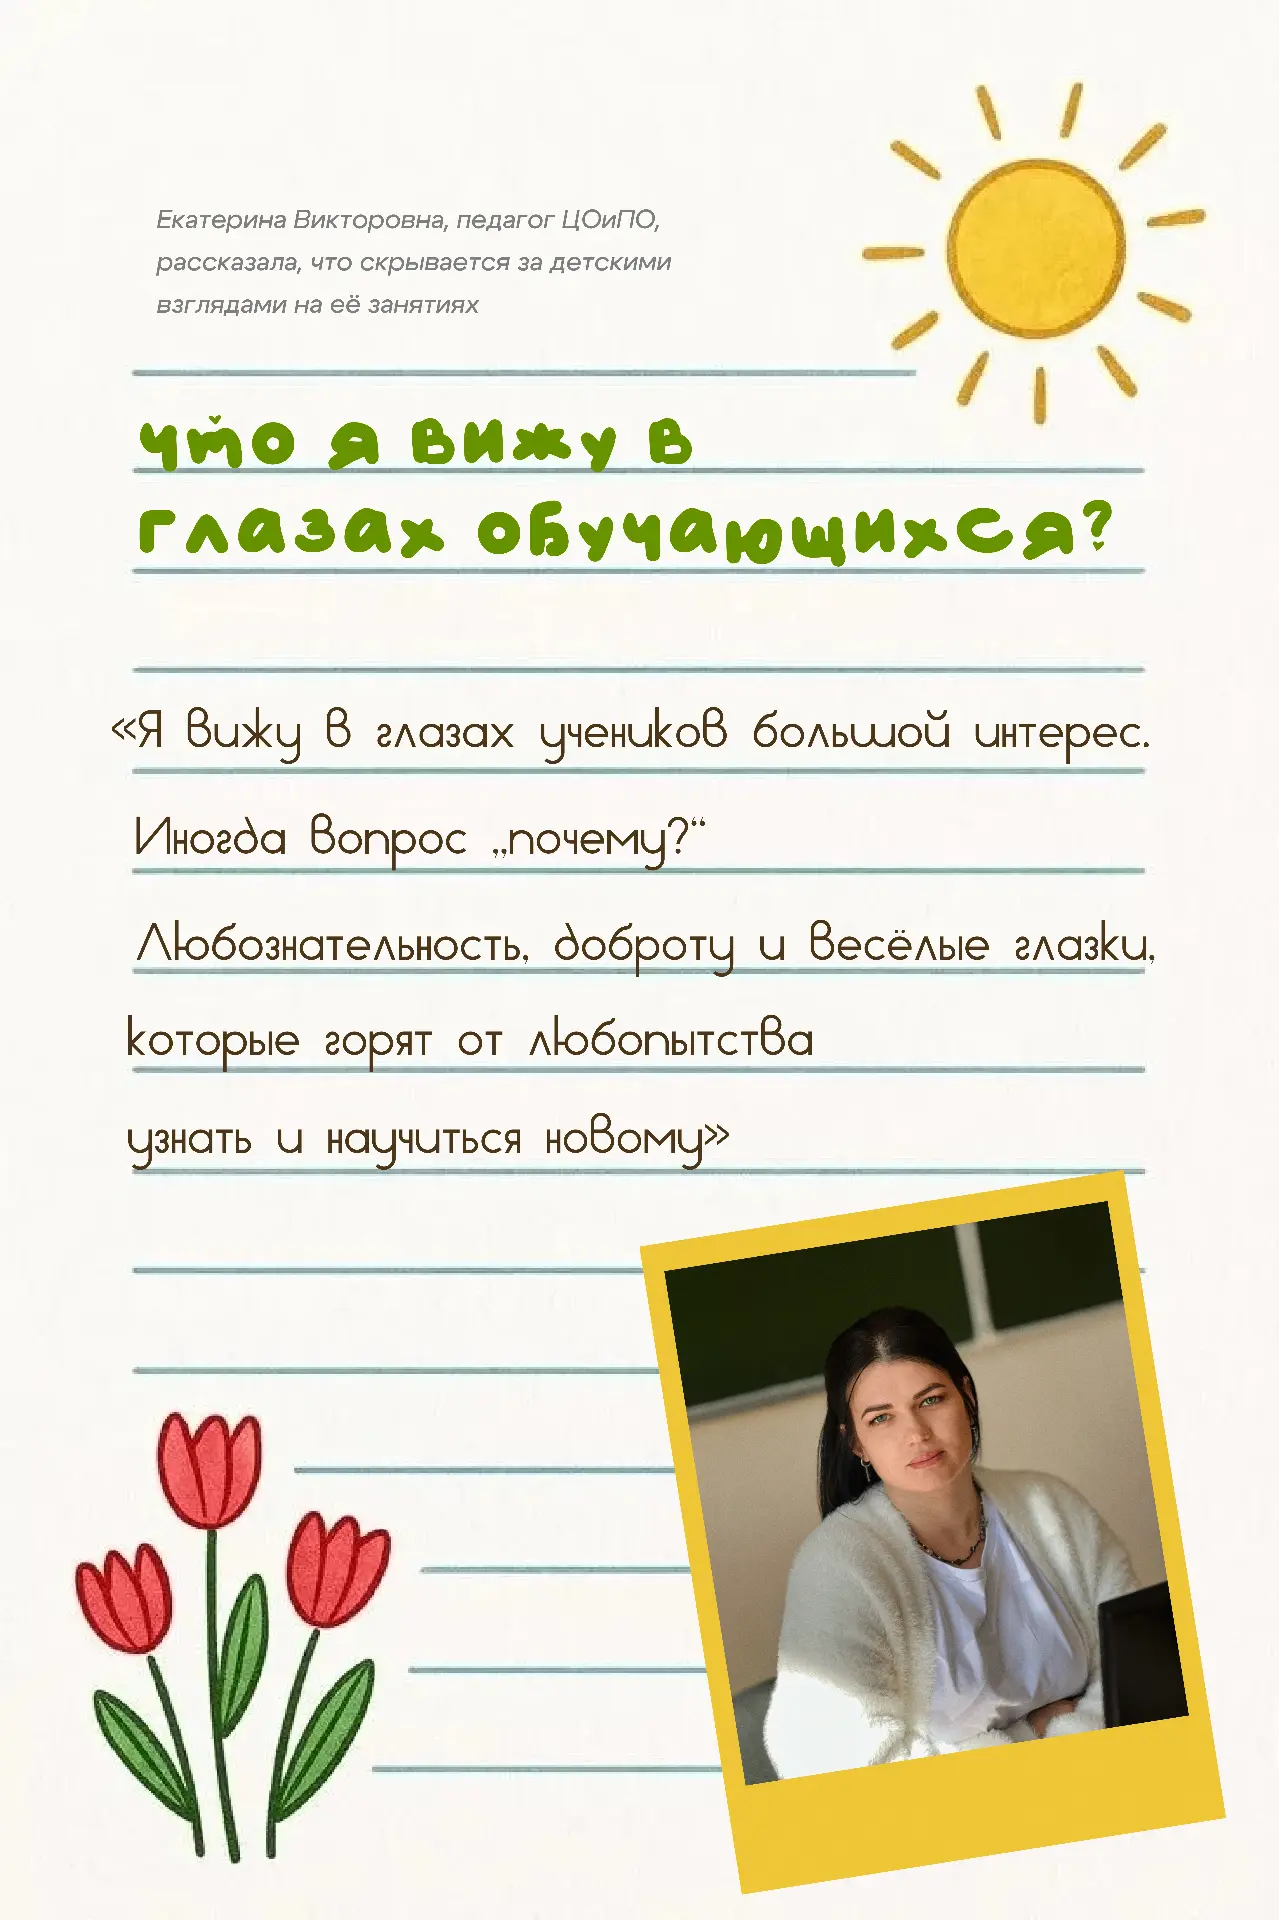 Екатерина Викторовна, педагог ЦОиПО,
рассказала, что скрывается за детскими
взглядами на её занятиях
что я вижу в
глазах обучающихся?
«Я вижу в глазах учеников большой интерес.
Иногда вопрос „почему?“
Любознательность, доброту и весёлые глазки,
которые горят от любопытства
узнать и научиться новому»